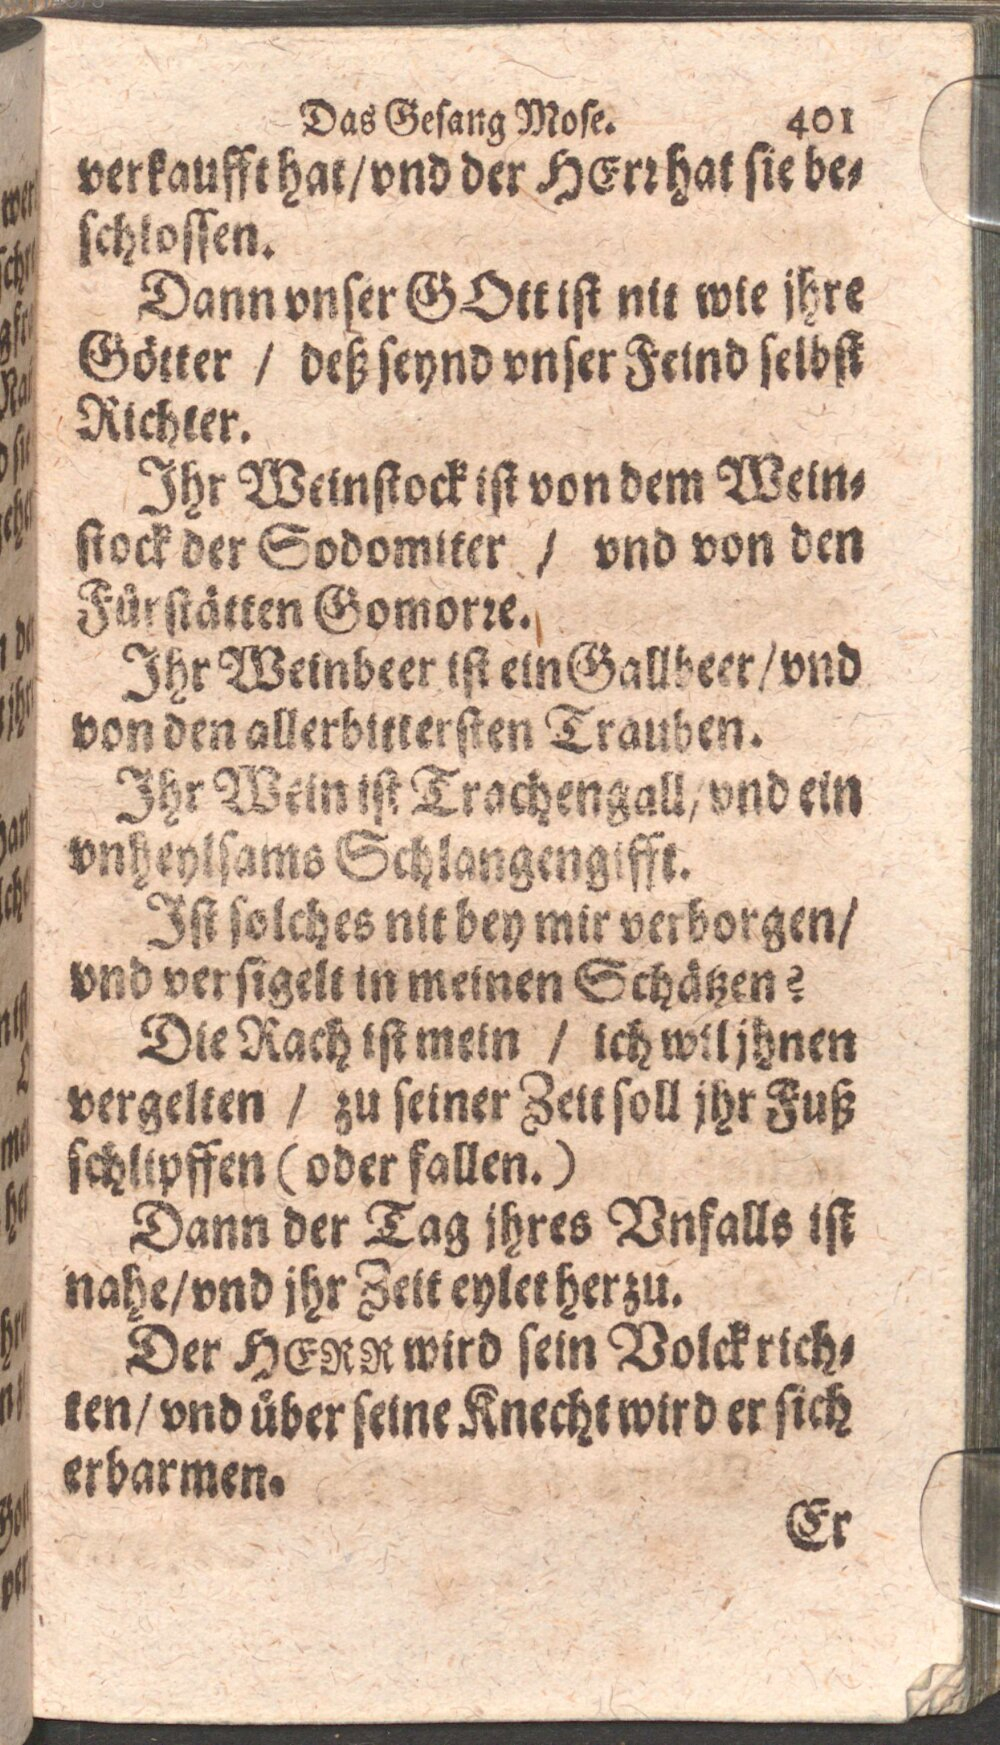 Das Gesang Mose. 401
verkaufft hat/vnd der HErr hat sie be-
schlossen.
Dann vnser GOtt ist nit wie jhre
Götter / deß seynd vnser Feind selbst
Richter.
Ihr Weinstock ist von dem Wein-
stock der Sodomiter / vnd von den
Fürstätten Gomorre.
Ihr Weinbeer ist ein Gallbeer/vnd
von den allerbittersten Trauben.
Ihr Wein ist Trachengall/vnd ein
vnheylsams Schlangengifft.
Ist solches nit bey mir verborgen/
vnd versigelt in meinen Schätzen?
Die Rach ist mein / ich wil jhnen
vergelten / zu seiner Zeit soll jhr Fuß
schlipffen (oder fallen.)
Dann der Tag jhres Vnfalls ist
nahe/vnd jhr Zeit eylet herzu.
Der HERR wird sein Volck rich-
ten/vnd über seine Knecht wird er sich
erbarmen.
Er